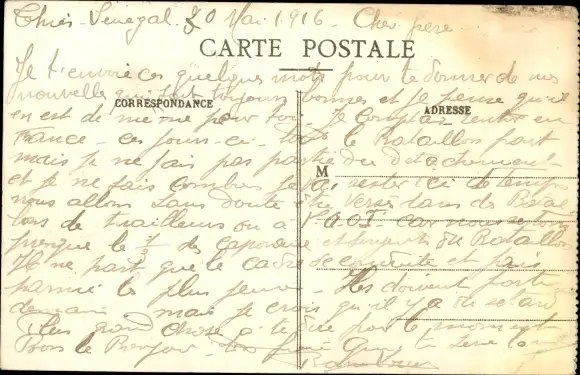 Thiès-Sénégal. 20 Mai 1916 - Cher père -
CARTE POSTALE
Je t'envoie ces quelques mots pour te donner de mes
nouvelle qui sont toujours bonnes et je pense qu'il
CORRESPONDANCE
ADRESSE
en est de même pour toi. Je comptais rentrer en
France - ces jours-ci - tout le Bataillon part
mais je ne fais pas partie du détachement
M
et je ne sais combien je vais rester ici de temps
nous allons sans doute être versés dans des Batail
lons de tirailleurs ou à l'A O F car nous
presque le de caporaux et sergents du Bataillon
Il ne part que le cadre et pris
parmi les plus jeunes - Ils doivent partir
demain mais je crois qu'il y a du retard
Plus grand chose à te dire pour le moment
Bons le Bonjour